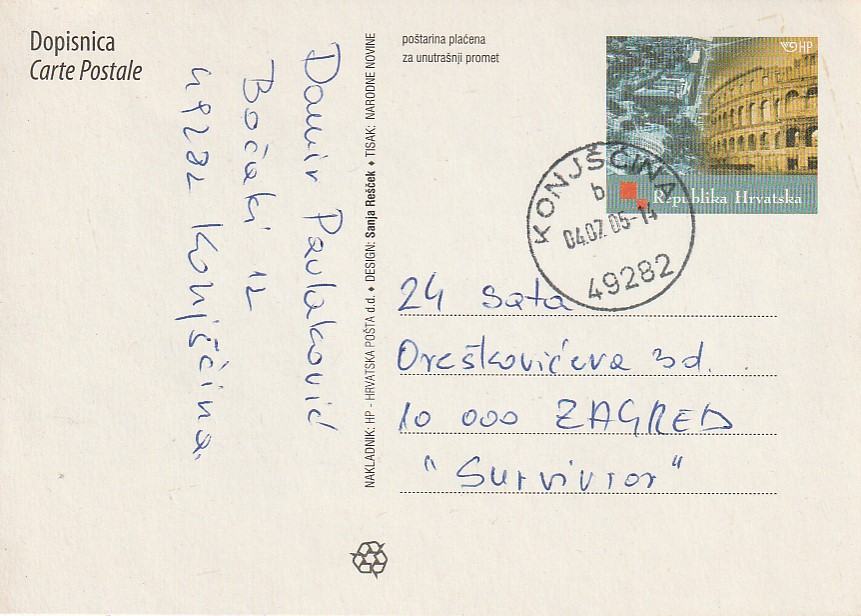 Dopisnica
Carte Postale
Damir Pavlaković
Bočaki 12
49282 Konjščina.
NAKLADNIK: HP - HRVATSKA POŠTA d.d. ♦ DESIGN: Sanja Rešček ♦ TISAK: NARODNE NOVINE
poštarina plaćena
za unutrašnji promet
HP
Republika Hrvatska
KONJŠČINA
b
04.07.05-14
49282
24 sata
Oreškovićeva 3d.
10 000 ZAGREB
"Survivror"